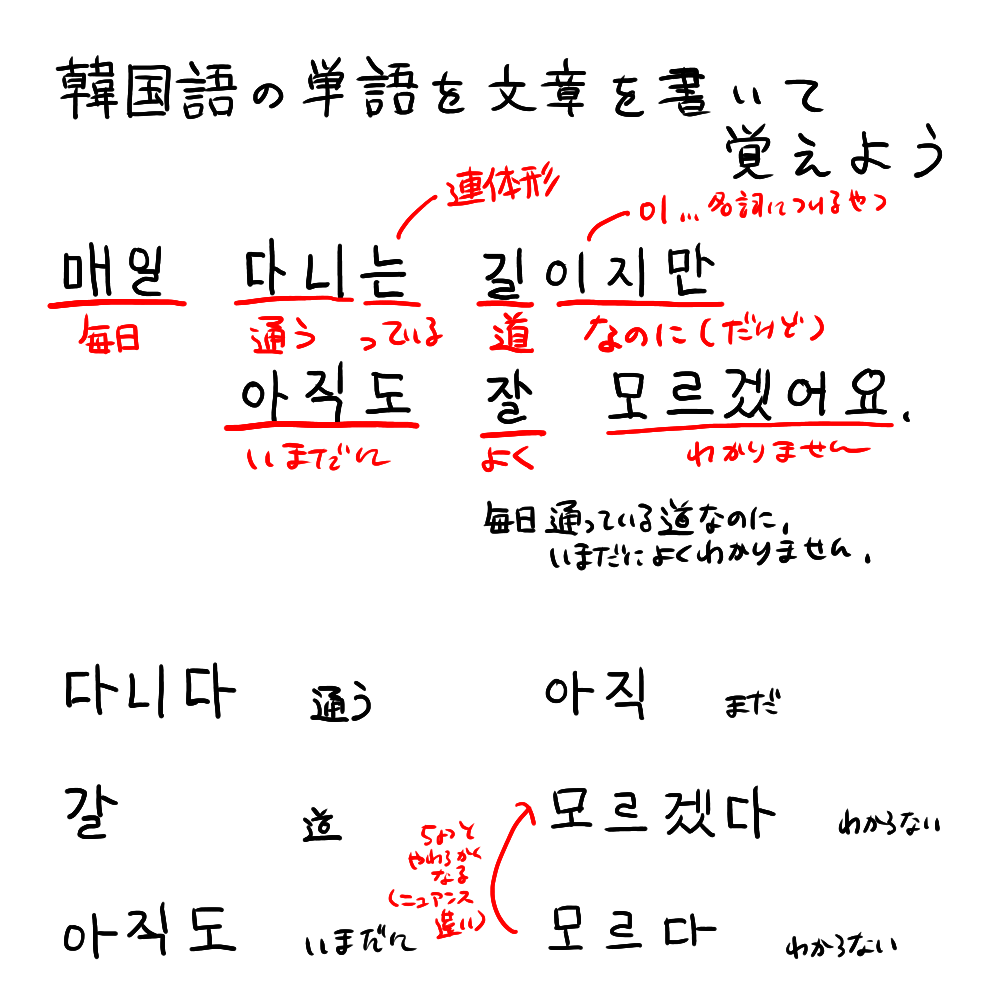 韓国語の単語を文章を書いて
覚えよう
連体形
이…名詞につけるやつ
매일 다니는 길이지만
毎日 通う っている 道 なのに(だけど)
아직도 잘 모르겠어요.
いまだに よく わかりません
毎日通っている道なのに、
いまだによくわかりません.
다니다 通う
아직 まだ
갈 道
모르겠다 わからない
ちょっと
やわらかく
なる
(ニュアンス
違い)
아직도 いまだに
모르다 わからない